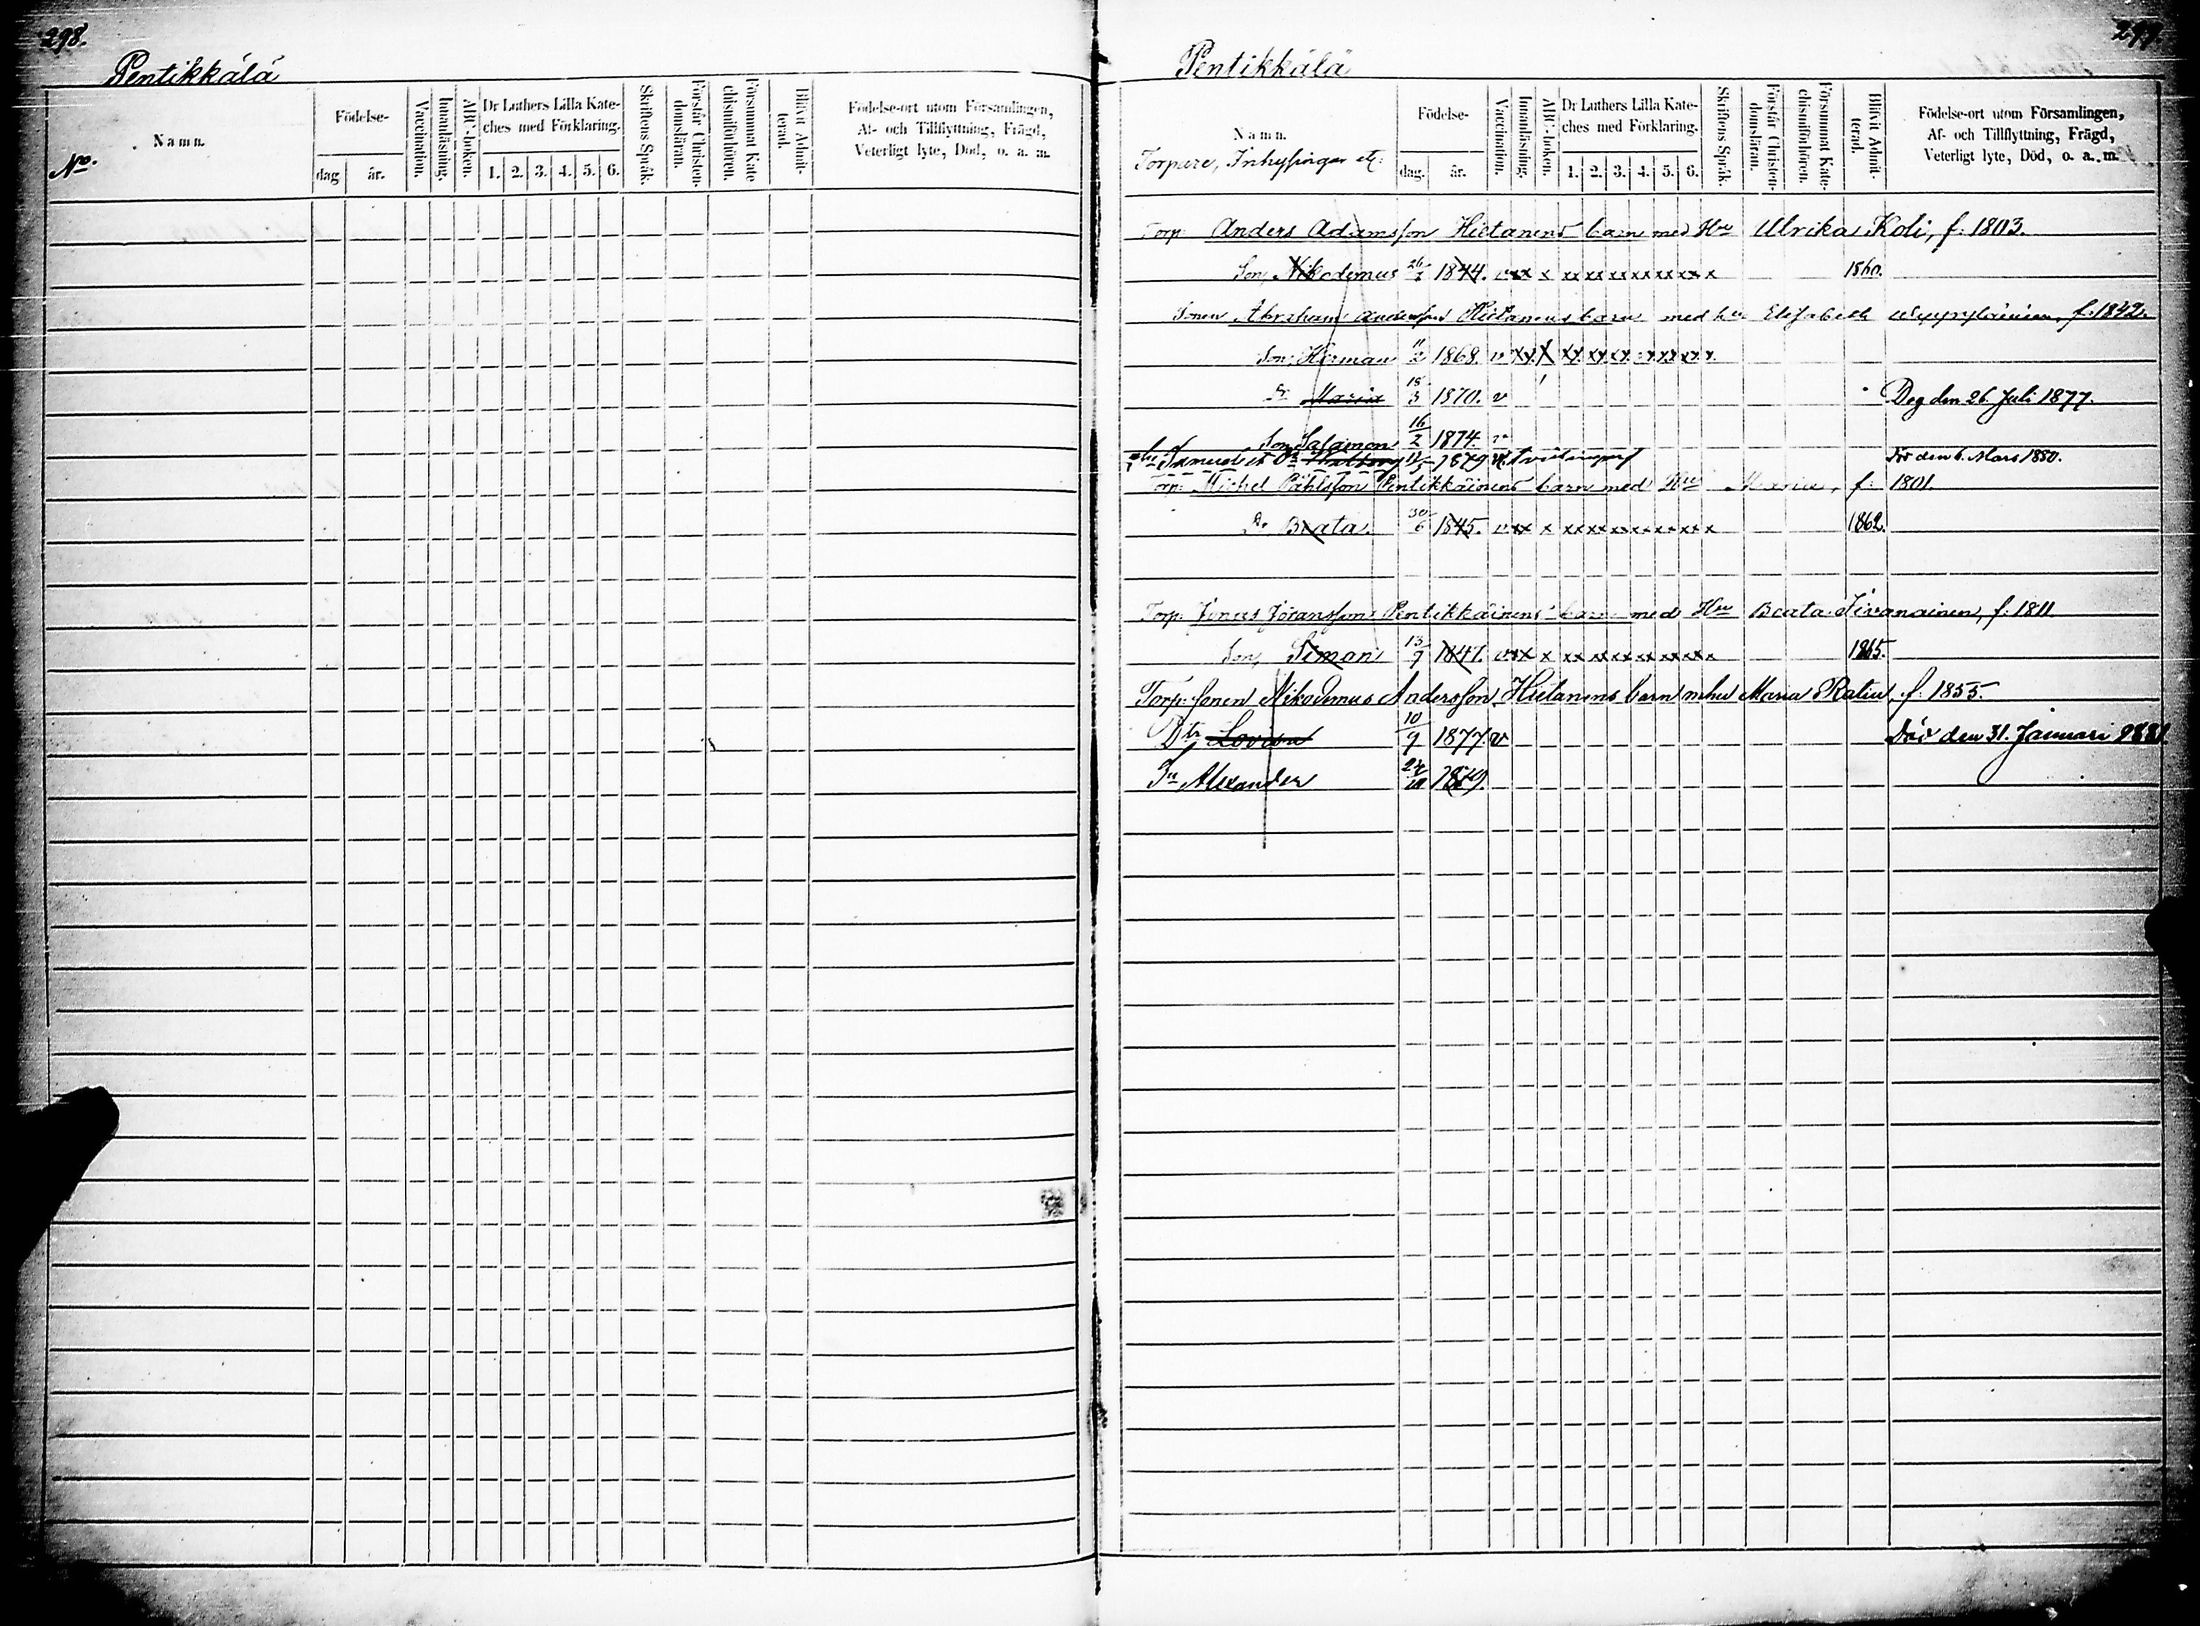 298.
Pentikkälä
No.
Namn.
Födelse-
dag
år.
Vaccination.
Innanläsning.
ABC-boken.
Dr Luthers Lilla Kate-
ches med Förklaring.
1. 2. 3. 4. 5. 6.
Skriftens Språk.
Förstår Christen-
domsläran.
Försummat Kate
chismiförhören.
Blifvit Admit-
terad.
Födelse-ort utom Församlingen,
Af- och Tillflyttning, Frägd,
Veterligt lyte, Död, o. a. m.
299.
Pentikkälä
Namn.
Torpare, Inhysingar etc:
Födelse-
dag.
år.
Vaccination.
Innanläsning.
ABC-boken.
Dr Luthers Lilla Kate-
ches med Förklaring.
1. 2. 3. 4. 5. 6.
Skriftens Språk.
Förstår Christen-
domsläran.
Försummat Kate-
chismiförhören.
Blifvit Admit-
terad.
Födelse-ort utom Församlingen,
Af- och Tillflyttning, Frägd,
Veterligt lyte, Död, o. a. m.
Torp: Anders Adamsson Hietanens barn med Hu Ulrika Koli, f. 1803.
Son, Nikodemus 26/1 1844. v xx x xx xx xx xx xx xx x 1860.
Sonen Abraham Andersson Hietanens barn med hu Elisabeth f. 1842.
Son, Herman 11/2 1868. v
Dr Maria 15/3 1870. v Dog den 26 Juli 1877.
Son Salomon 16/2 1874. v
Samuel 1879 Död den 6. Mars 1880.
Torp: Michel Påhlsson Pentikkäinens barn med Hu Maria, f. 1801.
Dr Beata. 30/6 1845. v xx x xx xx xx xx xx xx x 1862.
Torp: Jöransson Pentikkäinens barn med Hu Beata Sivanainen, f. 1811
Son, Simon 13/9 1847. v xx x xx xx xx xx xx xx x 1865.
Torp: sonen Nikodemus Andersson Hietanens barn m hu Maria f. 1855.
Dtr Lovisa 10/9 1877. v Död den 31. Januari 1881.
Sn Alexander 1879.